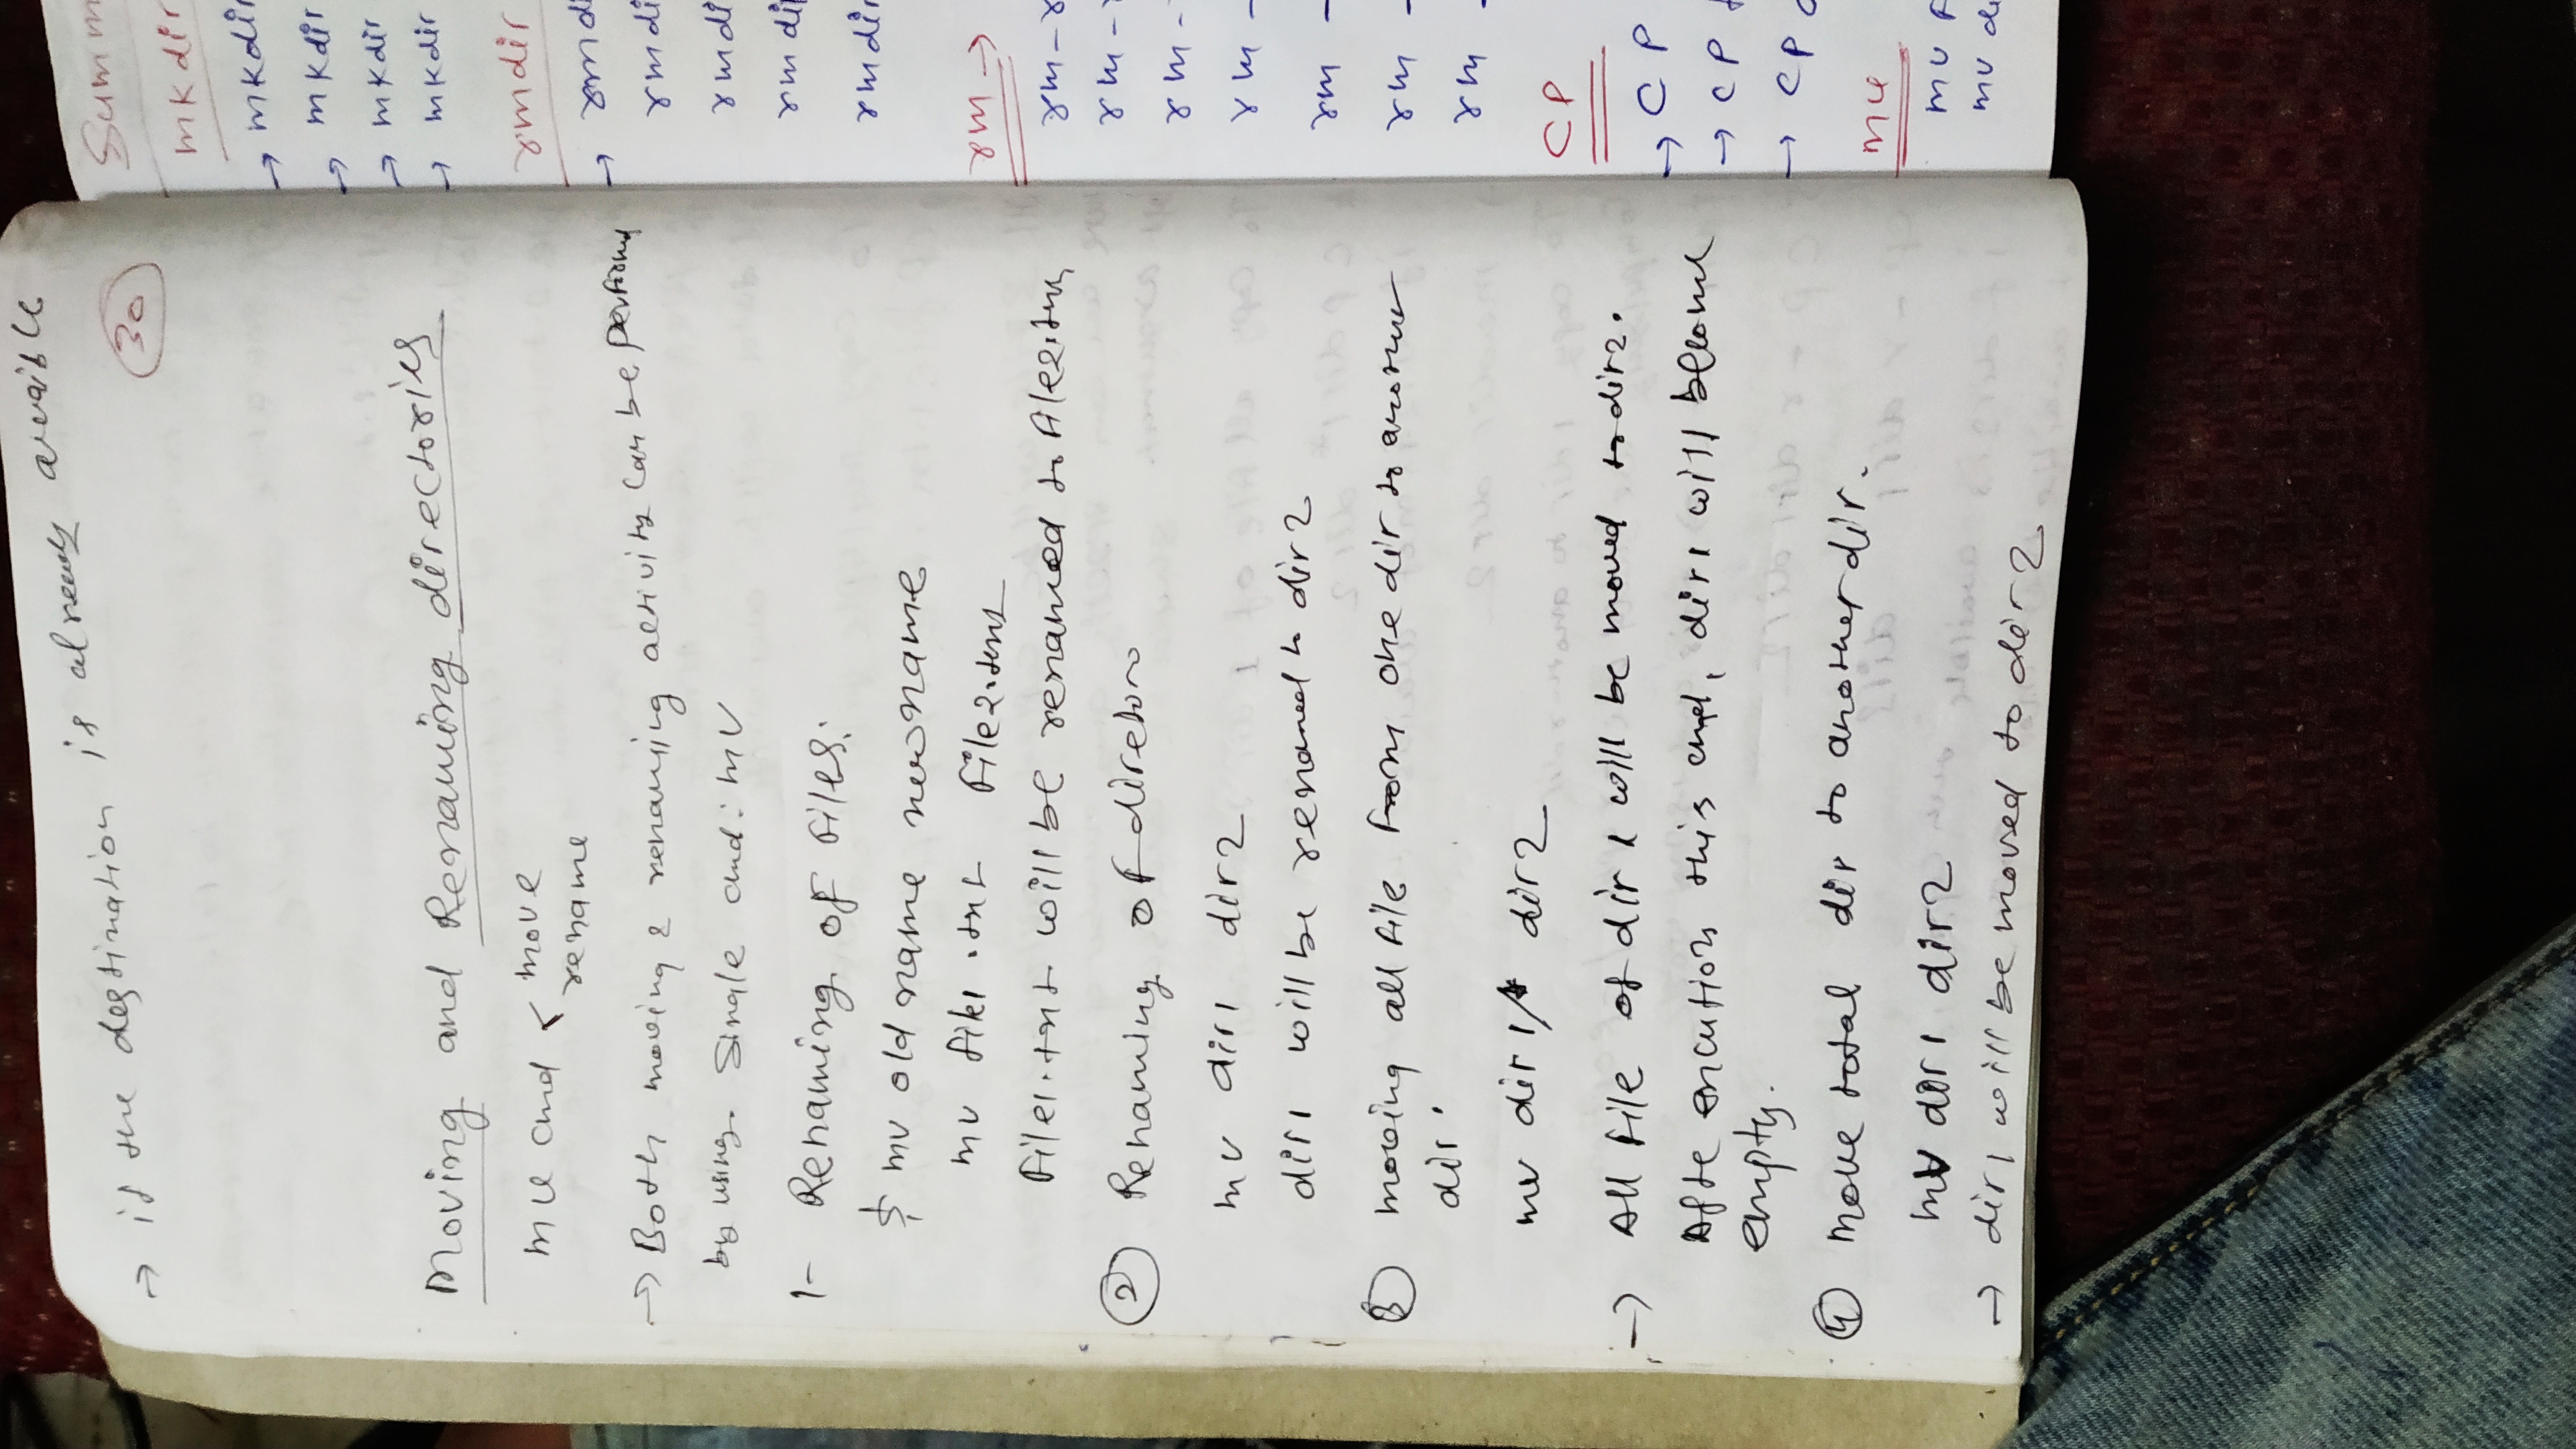 → if the destination is already avaible
30
Moving and Renaming directories
mv cmd < move
rename
→ Both moving & renaming activity can be performed
by using single cmd: mv
1- Renaming of files:
$ mv old name newname
mv file1.txt file2.txt
File1.txt will be renamed to file2.txt
② Renaming of
mv dir1 dir2
dir1 will be renamed to dir2
③ moving all file from one dir to another
dir.
mv dir1/* dir2
→ All file of dir1 will be moved to dir2.
After this cmd, dir1 will become
empty.
④ Move total dir to another dir.
mv dir1 dir2
→ dir1 will be moved to dir2
Summ
mkdir
→ mkdir
→ mkdir
→ mkdir
→ mkdir
rmdir
→ rmdi
rmdi
rmdi
rmdi
rmdir
rm →
rm -r
rm -
rm -
rm -
rm -
rm -
rm -
CP
→ CP
→ CP
→ CP
mv
mv
mv d